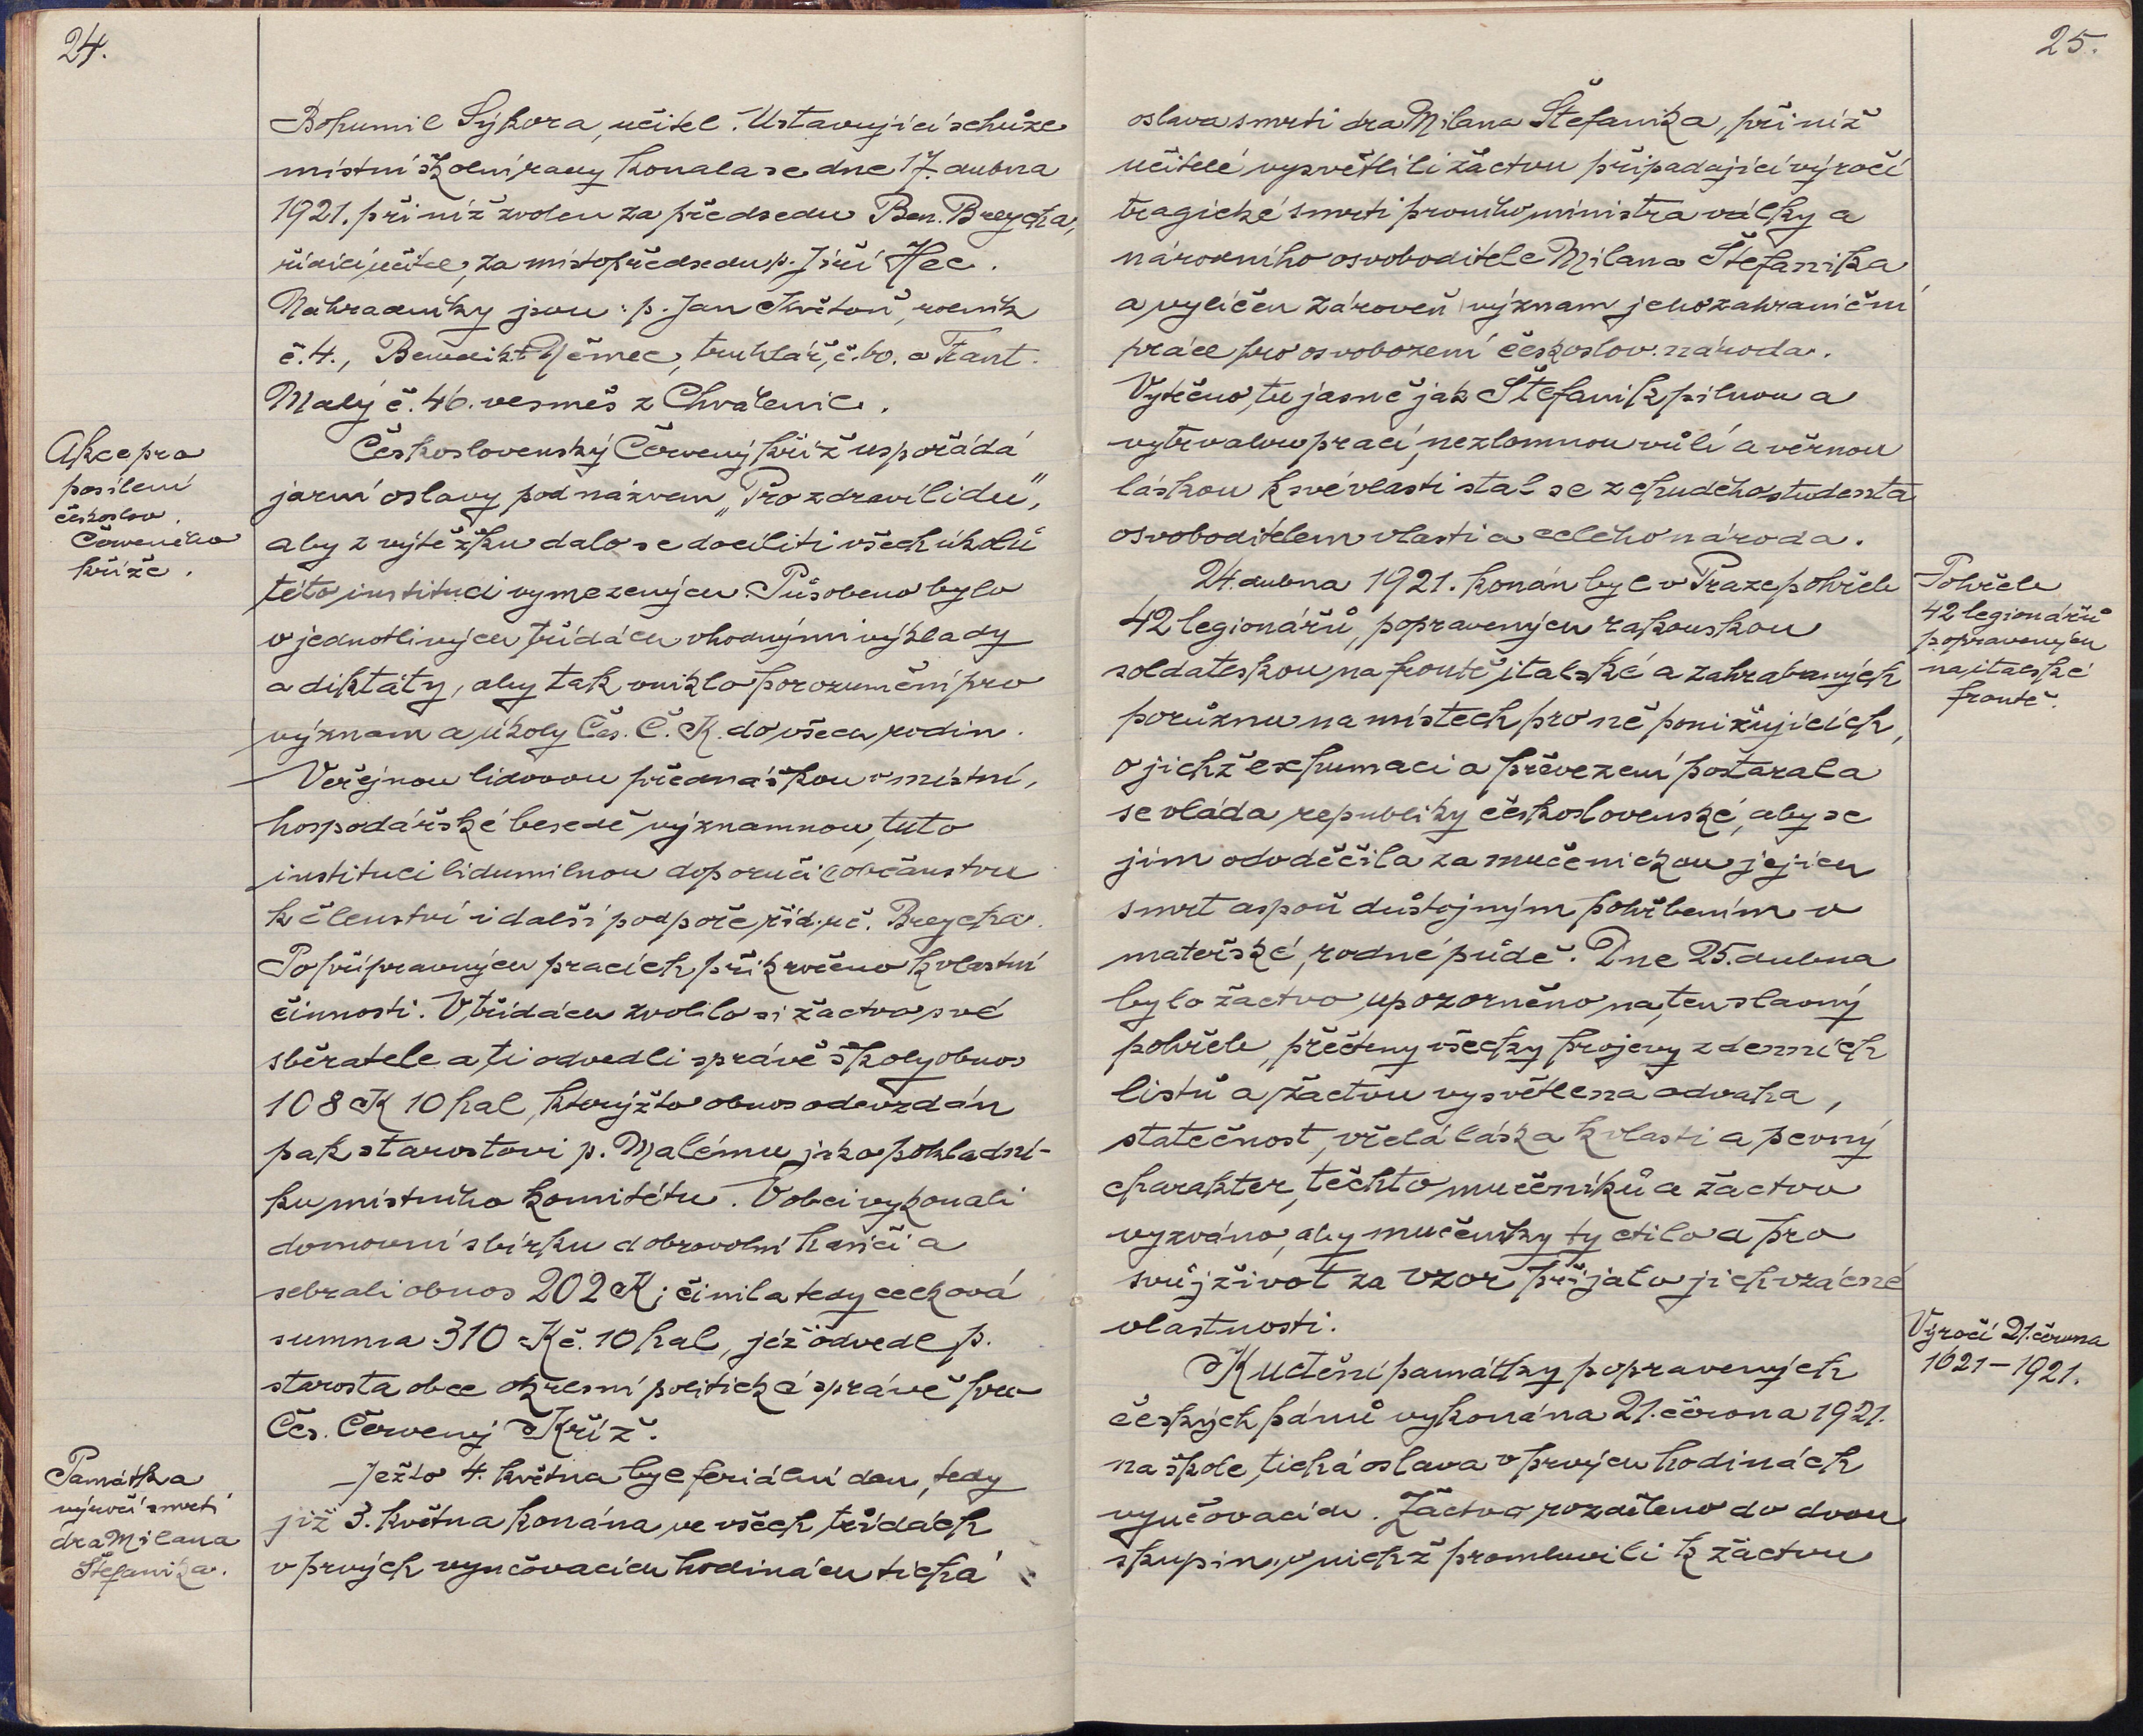 24.
Bohumil Sýkora, učitel. Ustavující schůze
místní školní rady konala se dne 17. dubna
1921. při níž zvolen za předsedu Ben. Breycha,
řídící učitel, za místopředsedu p. Jiří Hec.
Náhradníky jsou: p. Jan Květoň, rolník
č. 4., Benedikt Němec, truhlář, č. 60. a Frant.
Malý č. 46. vesměs z Chválenic.
Akce pro
posílení
českoslov.
Červeného
kříže.
Československý Červený kříž uspořádá
jarní oslavy pod názvem „Pro zdraví lidu",
aby z výtěžku dalo se docíliti všech úkolů
této instituci vymezených. Působeno bylo
v jednotlivých třídách vhodnými výklady
a diktáty, aby tak vniklo porozumění pro
význam a úkoly Čes. Č. K. do všech rodin.
Veřejnou lidovou přednáškou v místní,
hospodářské besedě významnou, tuto
instituci lidumilnou doporučil občanstvu
k členství i další podpoře říd. uč. Breycha.
Po přípravných pracích přikročeno k vlastní
činnosti. V třídách zvolilo si žactvo své
sběratele a ti odvedli správě školy obnos
108 K 10 hal, kterýžto obnos odevzdán
pak starostovi p. Malému jako pokladní-
ku místního komitétu. V obci vykonali
domovní sbírku dobrovolní hasiči a
sebrali obnos 202 K; činila tedy celková
summa 310 Kč. 10 hal, jež odvedl p.
starosta obce okresní politické správě pro
Čes. Červený Kříž.
Památka
výročí smrti
dra Milana
Štefanika.
Ježto 4. května byl feriální den, tedy
již 3. května konána ve všech třídách
v prvých vyučovacích hodinách tichá
25.
oslava smrti dra Milana Štefanika, při níž
učitelé vysvětlili žactvu připadající výročí
tragické smrti prvního ministra války a
národního osvoboditele Milana Štefanika
a vylíčen zároveň význam jeho zahraniční
práce pro osvobození českoslov. národa.
Vytčeno, tu jasně jak Štefanik pilnou a
vytrvalou prací, nezlomnou vůlí a věrnou
láskou k své vlasti stal se z chudého studenta
osvoboditelem vlasti a celého národa.
24. dubna 1921. konán byl v Praze pohřeb
42 legionářů, popravených rakouskou
soldateskou na frontě italské a zahrabaných
porůznu na místech pro ně ponižujících,
o jichž exhumaci a převezení postarala
se vláda republiky československé, aby se
jim odvděčila za mučenickou jejich
smrt aspoň důstojným pohřbením v
mateřské, rodné půdě. Dne 25. dubna
bylo žactvo upozorněno na ten slavný
pohřeb, přečteny všecky projevy z denních
listů a žactvu vysvětlena odvaha,
statečnost, vřelá láska k vlasti a pevný
charakter, těchto mučeníků a žactvo
vyzváno, aby mučeníky ty ctilo a pro
svůj život za vzor přijalo jich vzácné
vlastnosti.
Pohřeb
42 legionářů
popravených
na italské
frontě.
Výročí 21. června
1621–1921.
K uctění památky popravených
českých pánů vykonána 21. června 1921.
na škole, tichá oslava v prvých hodinách
vyučovacích. Žactvo rozděleno do dvou
skupin, v nichž promluvili k žactvu